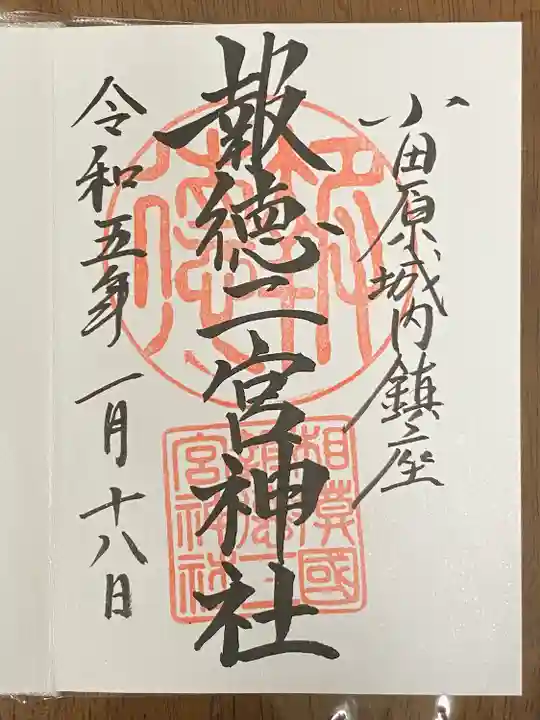 小田原城内鎮座
報徳二宮神社
報徳
相模國
報徳二
宮神社
令和五年一月十八日